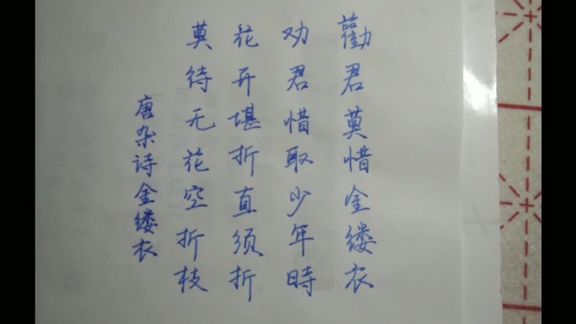 勸君莫惜金缕衣
劝君惜取少年時
花开堪折直须折
莫待无花空折枝
唐杂诗金缕衣